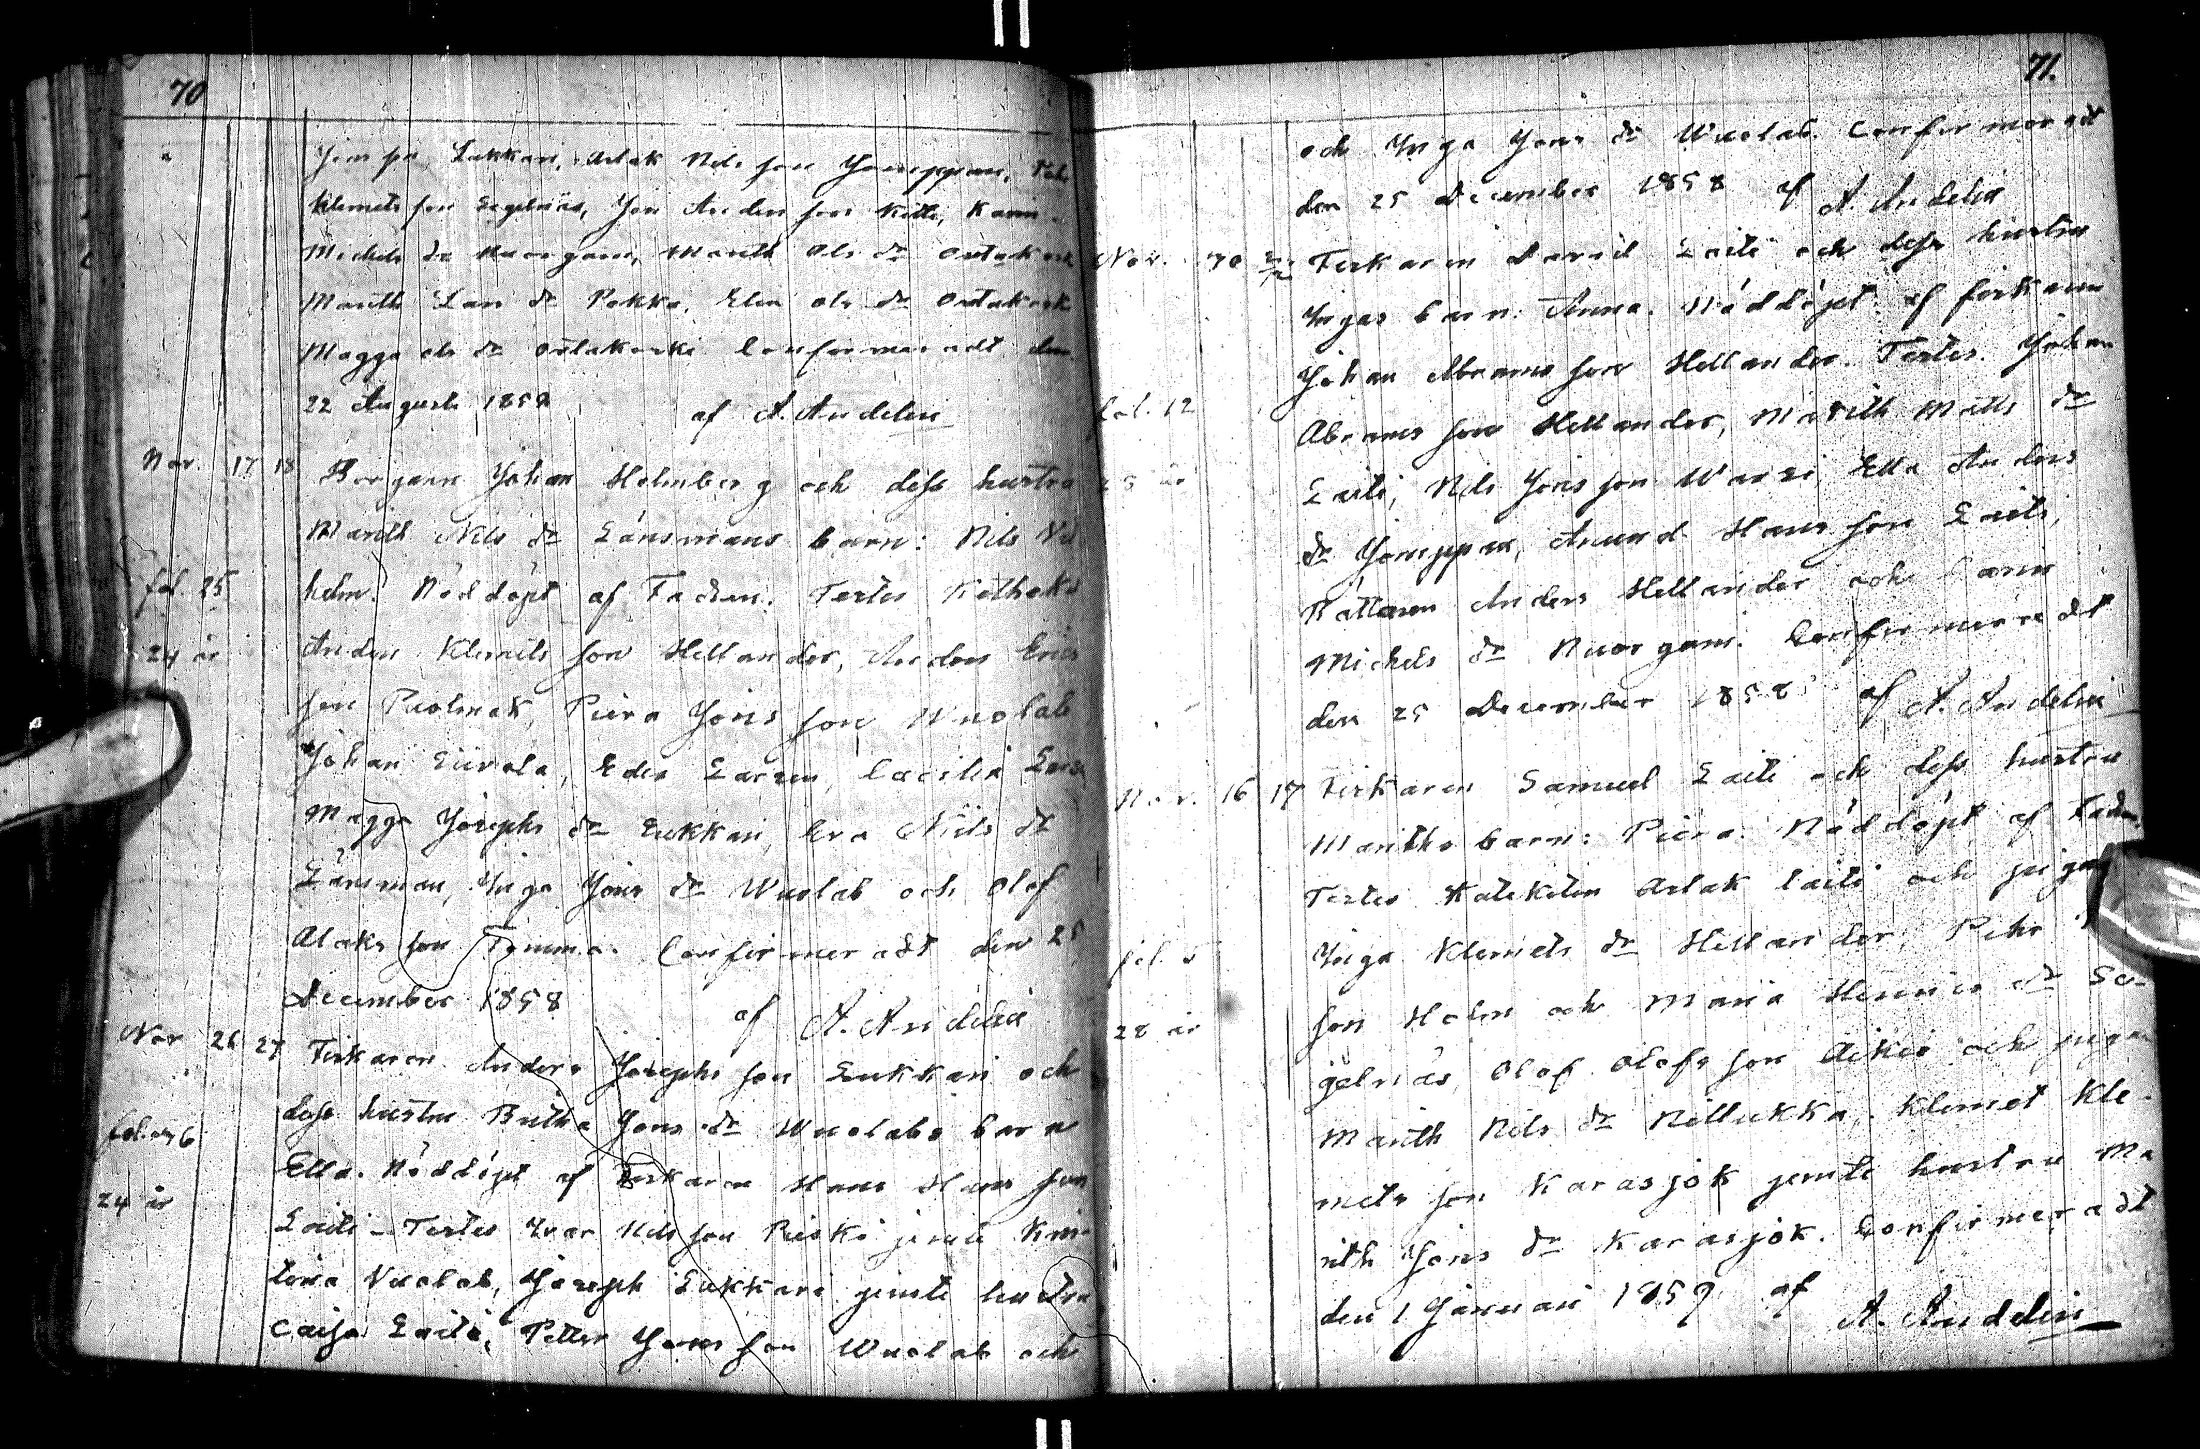 70
Lukkari, Aslak Nils son Jomppan,
Klemets son Jon Anders son Kitti, Karin
Michels dr Nuorgam, Marith Ols dr Outakoski
Marith Lars dr Pokka, Elin Ols dr Outakoski
Magga Ols dr Outakoski Confirmeradt den
22 Augusti 1858 af A. Andelin
Nov. 17 18 Borgaren Johan Holmberg och dess hustru
Marith Nils dr Länsmans barn: Nils
fol. 25 helm. Nöddöpt af Fadren. Testes
24 år Anders Klemets son Hellander, Anders Erics
son Puolmak, Piera Jons son Wuolab
Johan Eurola, Edea Larsen, Cæcilia
Magga Josephs dr Lukkari, Eva Nils dr
Länsman, Inga Jons dr Wuolab och Olof
Alaks son Tomma. Confirmeradt den 25
December 1858 af A. Andelin
Nov 26 27 Fiskaren Anders Josephs son Lukkari och
dess hustru Britha Jons dr Wuolabs barn
fol. 26 Ella. Nöddöpt af Fiskaren Hans Hans son
24 år Laiti - Testes Ivar Nils son Pieski jemte Kris-
tina Vuolab, Joseph Lukkari jemte hustru
Caisa Laiti, Petter Jons son Wuolab och
71.
och Inga Jons dr Wuolab. Confirmeradt
den 25 December 1858 af A. Andelin
Nov. 30 Fiskaren David Laiti och dess hustru
Ingas barn: Anna. Nöddöpt af fiskaren
Johan Abrams son Hellander. Testes. Johan
fol. 12 Abrams son Hellander, Marith Matts dr
år Laiti, Nils Jons son Warsi, Ella Anders
dr Jomppan, Amund Hans son Laiti,
Rättaren Anders Hellander och Karin
Michels dr Nuorgam. Confirmeradt
den 25 December 1858 af A. Andelin
Nov. 16 17 Fiskaren Samuel Laiti och dess hustru
Mariths barn: Piera. Nöddöpt af Fadren.
Testes Kateketen Aslak Laiti och pigan
fol. 5 Inga Klemets dr Hellander, Pehr
28 år son Holm och Maria Henrics dr Se-
gelnäs, Olof Olofs son Aikio och pigan
Marith Nils dr Nillukka, Klemet Kle-
mets son Karasjok jemte hustru Ma
rith Jons dr Karasjok. Confirmeradt
den 1 Januari 1859 af A. Andelin